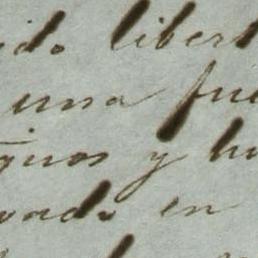 ido libert
una fue
guros y hu
vada en